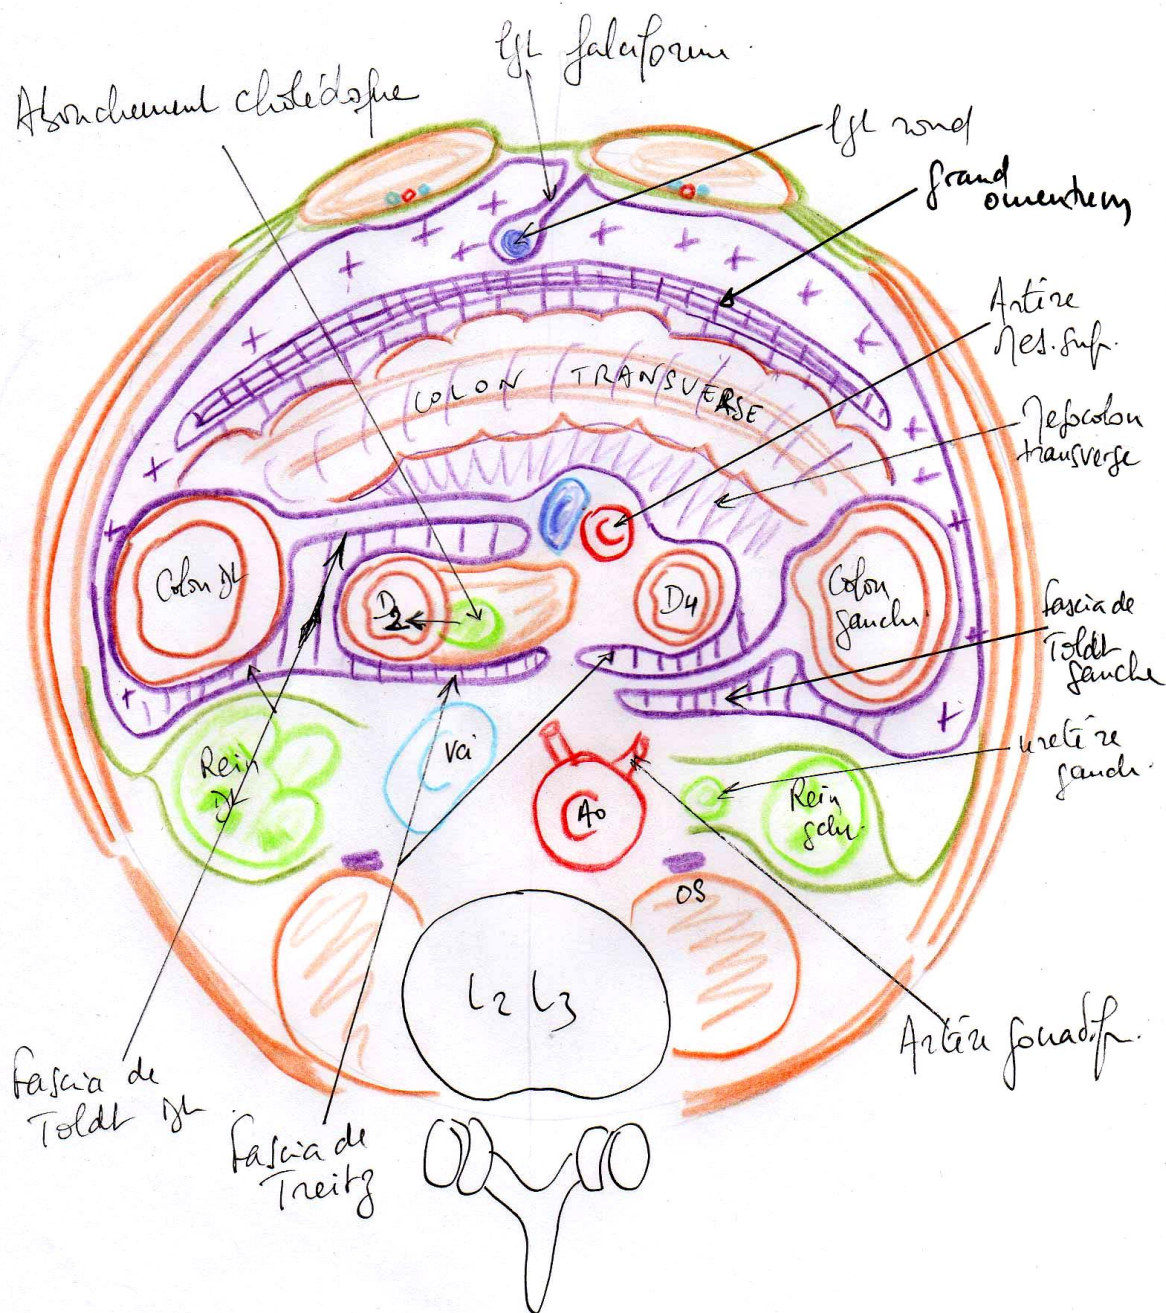 lgt falciforme
Abouchement cholédoque
lgt rond
grand
omentum
Artère
Mes. Sup.
COLON TRANSVERSE
Mesocolon
transverse
Colon Dt
D2
D4
Colon
gauche
fascia de
Toldt
gauche
uretère
gauche
Rein
Dt
Vci
Ao
Rein
gche
OS
L2 L3
Artère gonadique
Fascia de
Toldt Dt
Fascia de
Treitz